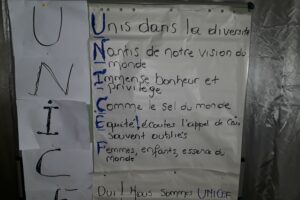 U
N
I
C
E
Unis dans la diversité
Nantis de notre vision du
monde
Immense bonheur et
privilège
Comme le sel du monde
Equité! écoutes l'appel de
souvent oubliés
Femmes, enfants, essence du
monde
Oui! Nous sommes UNICEF